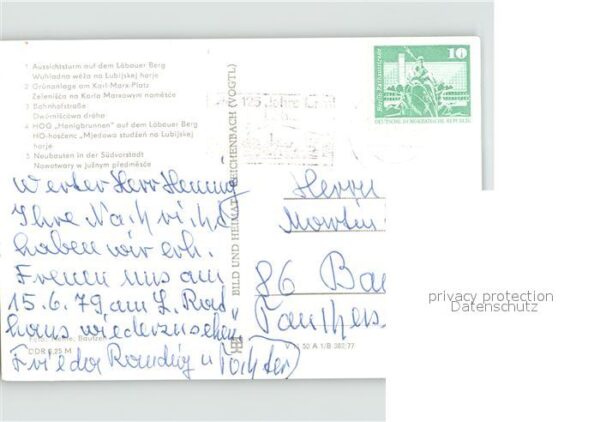 1 Aussichtsturm auf dem Löbauer Berg
Wuhladna wěža na Lubijskej horje
2 Grünanlage am Karl-Marx-Platz
Zelenišća na Karla Marxowym naměsće
3 Bahnhofstraße
Dwórnišćowa dróha
4 HOG „Honigbrunnen" auf dem Löbauer Berg
HO-hosćenc „Mjedowa studzeń na Lubijskej
horje
5 Neubauten in der Südvorstadt
Nowotwary w južnym předměsće
Werter Herr
Ihre Nachricht
haben wir erh.
Freuen uns am
15.6.79 am L. Rat
haus wiederzusehen.
Frieder u Tochter
Bautzen
DDR 0,25 M
BILD UND HEIMAT REICHENBACH (VOGTL)
V 11 50 A 1/B 382/77
125 Jahre
10
DEUTSCHE DEMOKRATISCHE REPUBLIK
Herrn
Martin
86 Bau
privacy protection
Datenschutz